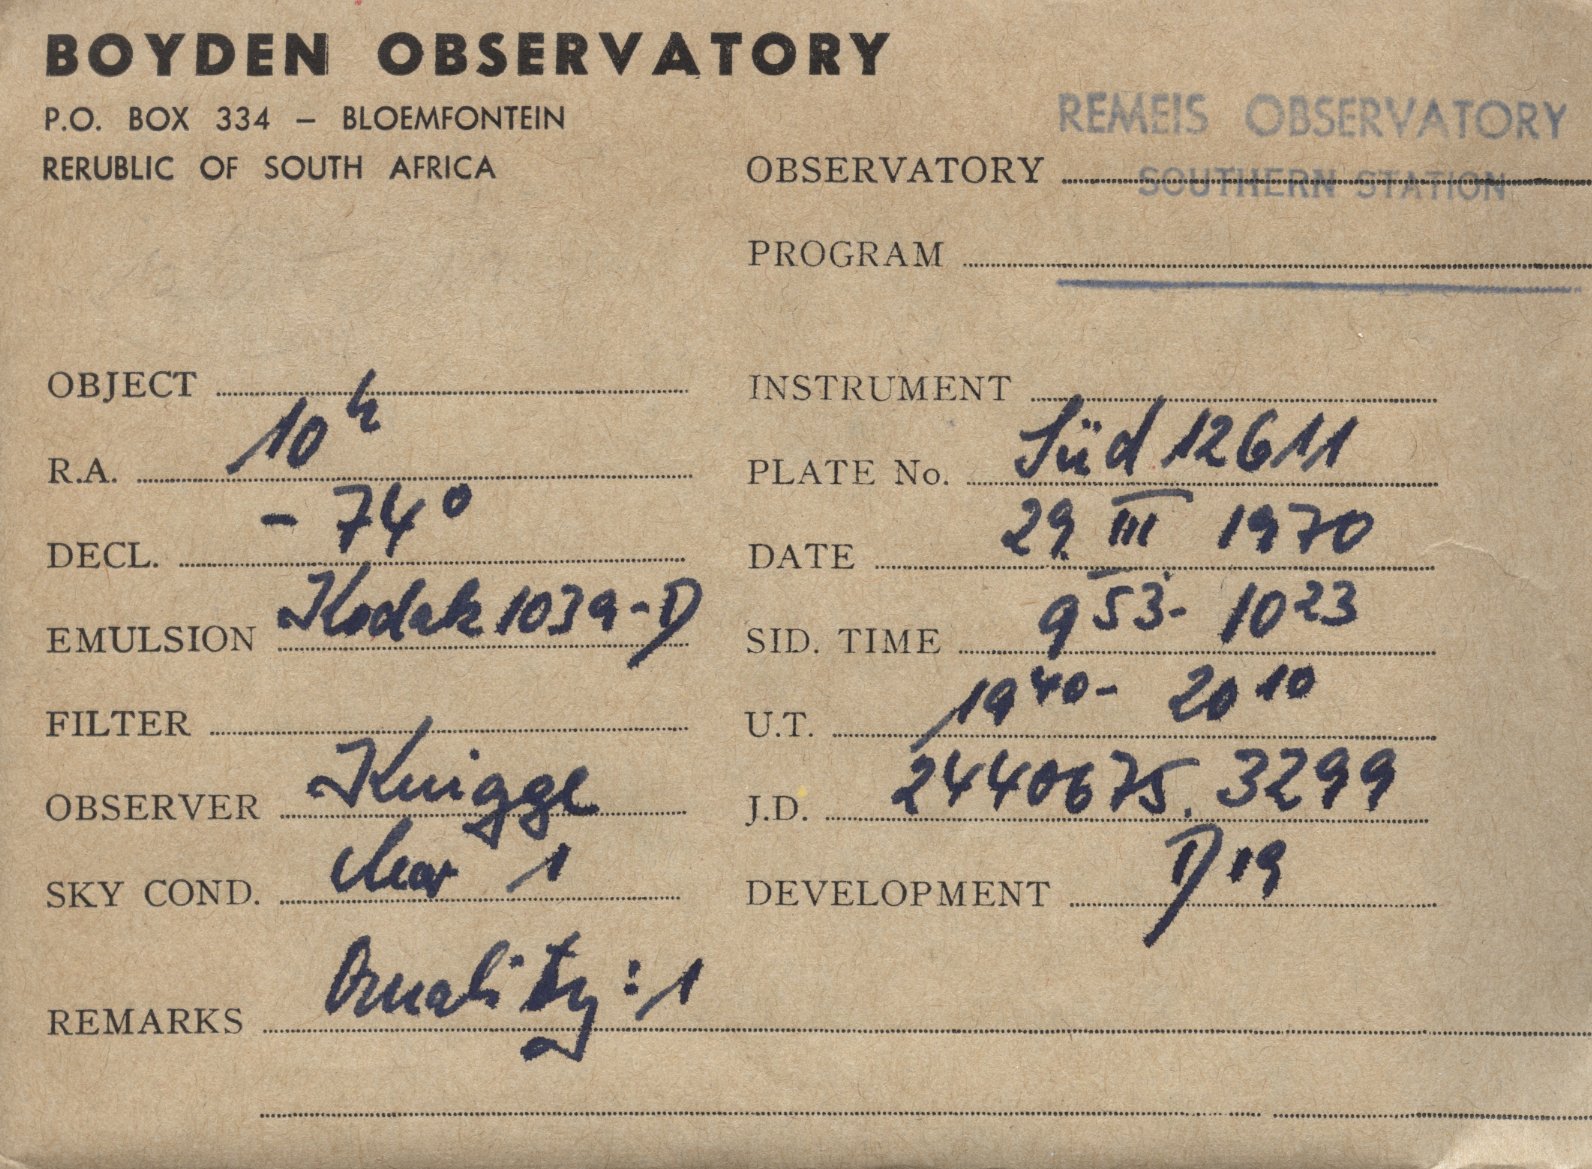 BOYDEN OBSERVATORY
P.O. BOX 334 – BLOEMFONTEIN
RERUBLIC OF SOUTH AFRICA
REMEIS OBSERVATORY
SOUTHERN STATION
OBSERVATORY
PROGRAM
OBJECT
R.A. 10h
DECL. - 74°
EMULSION Kodak 103a-D
FILTER
OBSERVER Knigge
SKY COND. clear 1
INSTRUMENT
PLATE No. Süd 12611
DATE 29. III 1970
SID. TIME 9 53 - 10 23
U.T. 19 40 - 20 10
J.D. 2440675.3299
DEVELOPMENT D19
REMARKS Quality: 1